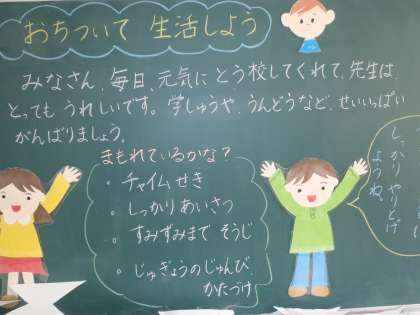 おちついて 生活しよう
みなさん、毎日、元気に とう校してくれて、先生は、
とっても うれしいです。学しゅうや、うんどうなど、せいいっぱい
がんばりましょう。
まもれているかな？
。チャイムせき
。しっかり あいさつ
。すみずみまで そうじ
。じゅぎょうのじゅんび、
かたづけ
しっかり やりとげ
ようね、